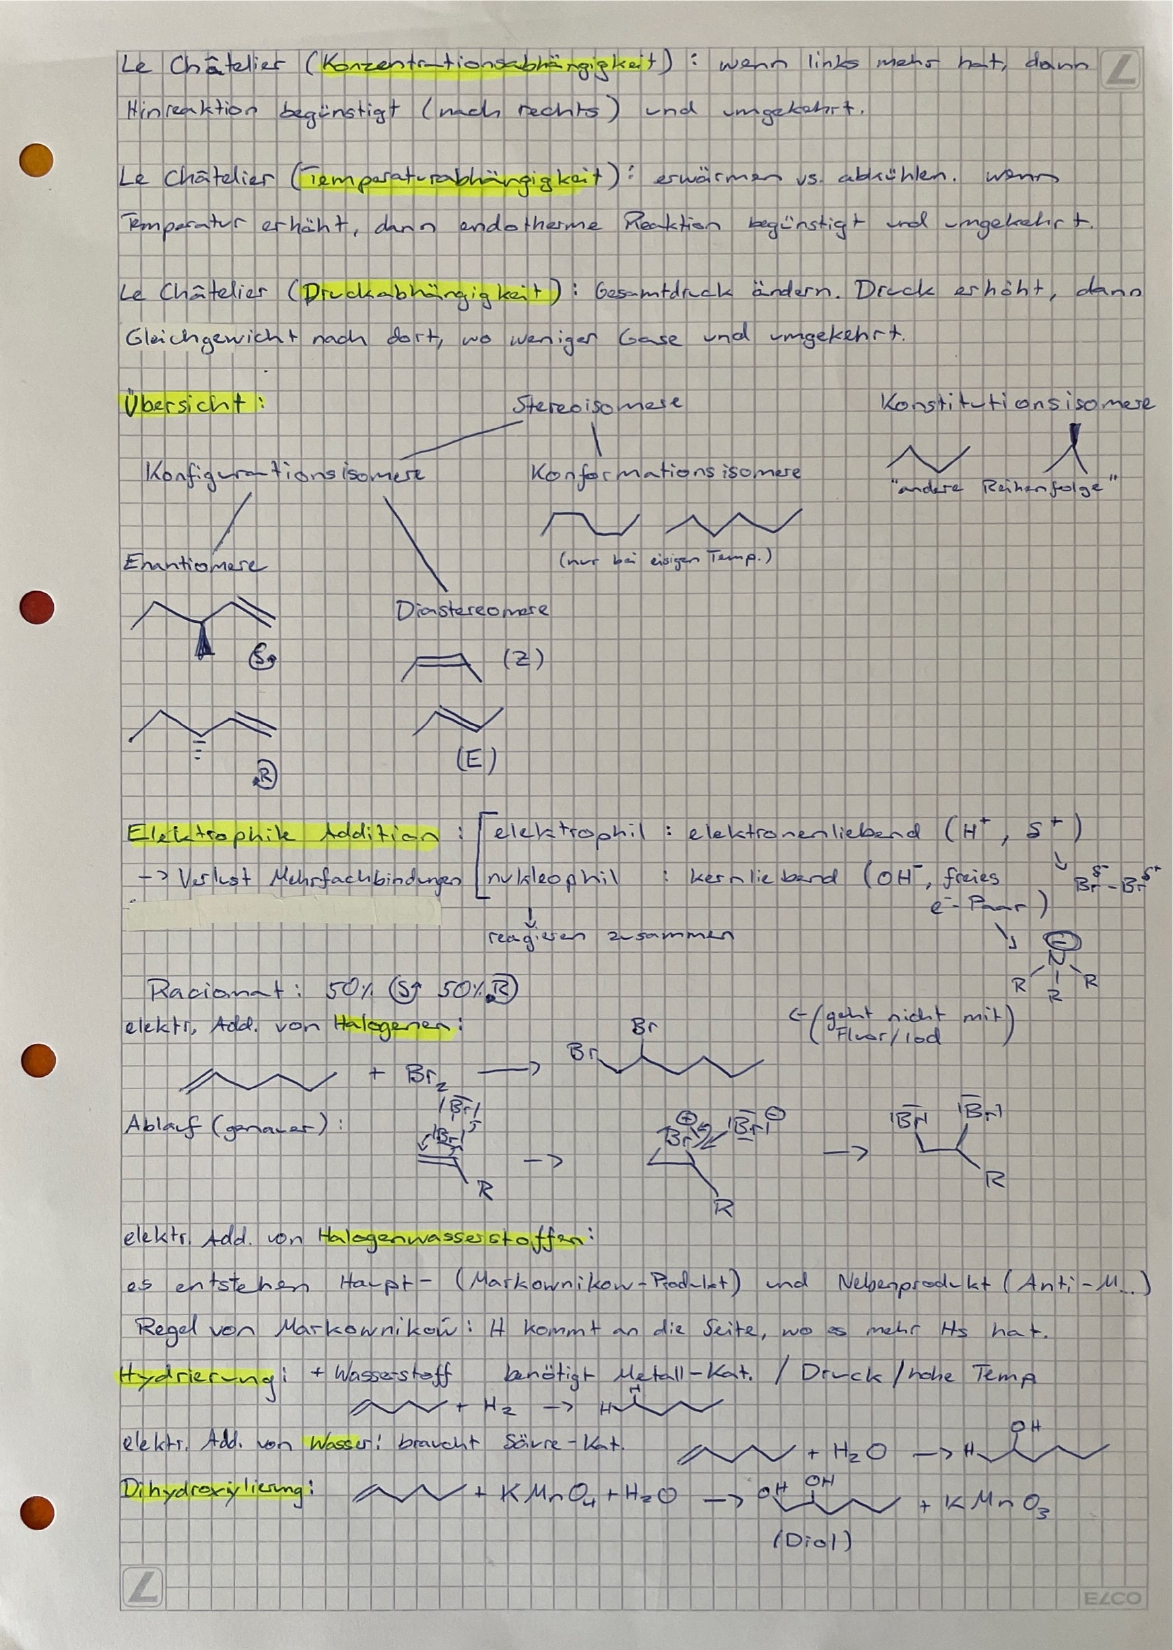 Le Châtelier (Konzentrationsabhängigkeit) : wenn links mehr hat, dann
Hinreaktion begünstigt (nach rechts) und umgekehrt.
Le Châtelier (Temperaturabhängigkeit) : erwärmen vs. abkühlen. wenn
Temperatur erhöht, dann endotherme Reaktion begünstigt und umgekehrt.
Le Châtelier (Druckabhängigkeit) : Gesamtdruck ändern. Druck erhöht, dann
Gleichgewicht nach dort, wo weniger Gase und umgekehrt.
Übersicht :
Stereoisomere
Konstitutionsisomere
Konfigurationsisomere
Konformationsisomere
"andere Reihenfolge"
(nur bei eisigen Temp.)
Enantiomere
Diastereomere
S
(Z)
R
(E)
Elektrophile Addition : elektrophil : elektronenliebend (H+, S+)
-> Verlust Mehrfachbindungen nukleophil : kernliebend (OH-, freies
e- - Paar)
Br - Br
δ- δ+
reagieren zusammen
N
R R R
Racionat : 50% S 50% R
elektr. Add. von Halogenen :
<-(geht nicht mit)
Fluor/Iod
+ Br2 ->
Br Br
Ablauf (genauer) :
Br
Br
R
->
Br Br
R
->
Br Br
R
elektr. Add. von Halogenwasserstoffen :
es entstehen Haupt- (Markownikow-Produkt) und Nebenprodukt (Anti-M...)
Regel von Markownikow : H kommt an die Seite, wo es mehr Hs hat.
Hydrierung : + Wasserstoff benötigt Metall-Kat. / Druck / hohe Temp
+ H2 -> H H
elektr. Add. von Wasser : braucht Säure-Kat.
+ H2O -> H OH
Dihydroxylierung :
+ KMnO4 + H2O -> OH OH + KMnO3
(Diol)
ELCO